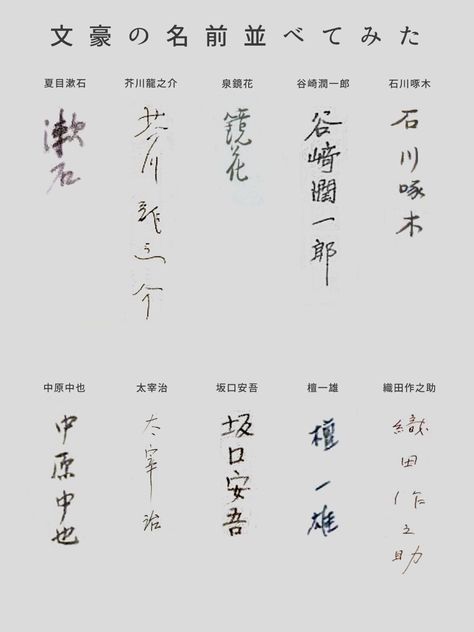 文豪の名前並べてみた
夏目漱石
芥川龍之介
泉鏡花
谷崎潤一郎
石川啄木
漱石
芥川龍之介
鏡花
谷﨑潤一郎
石川啄木
中原中也
太宰治
坂口安吾
檀一雄
織田作之助
中原中也
太宰治
坂口安吾
檀一雄
織田作之助